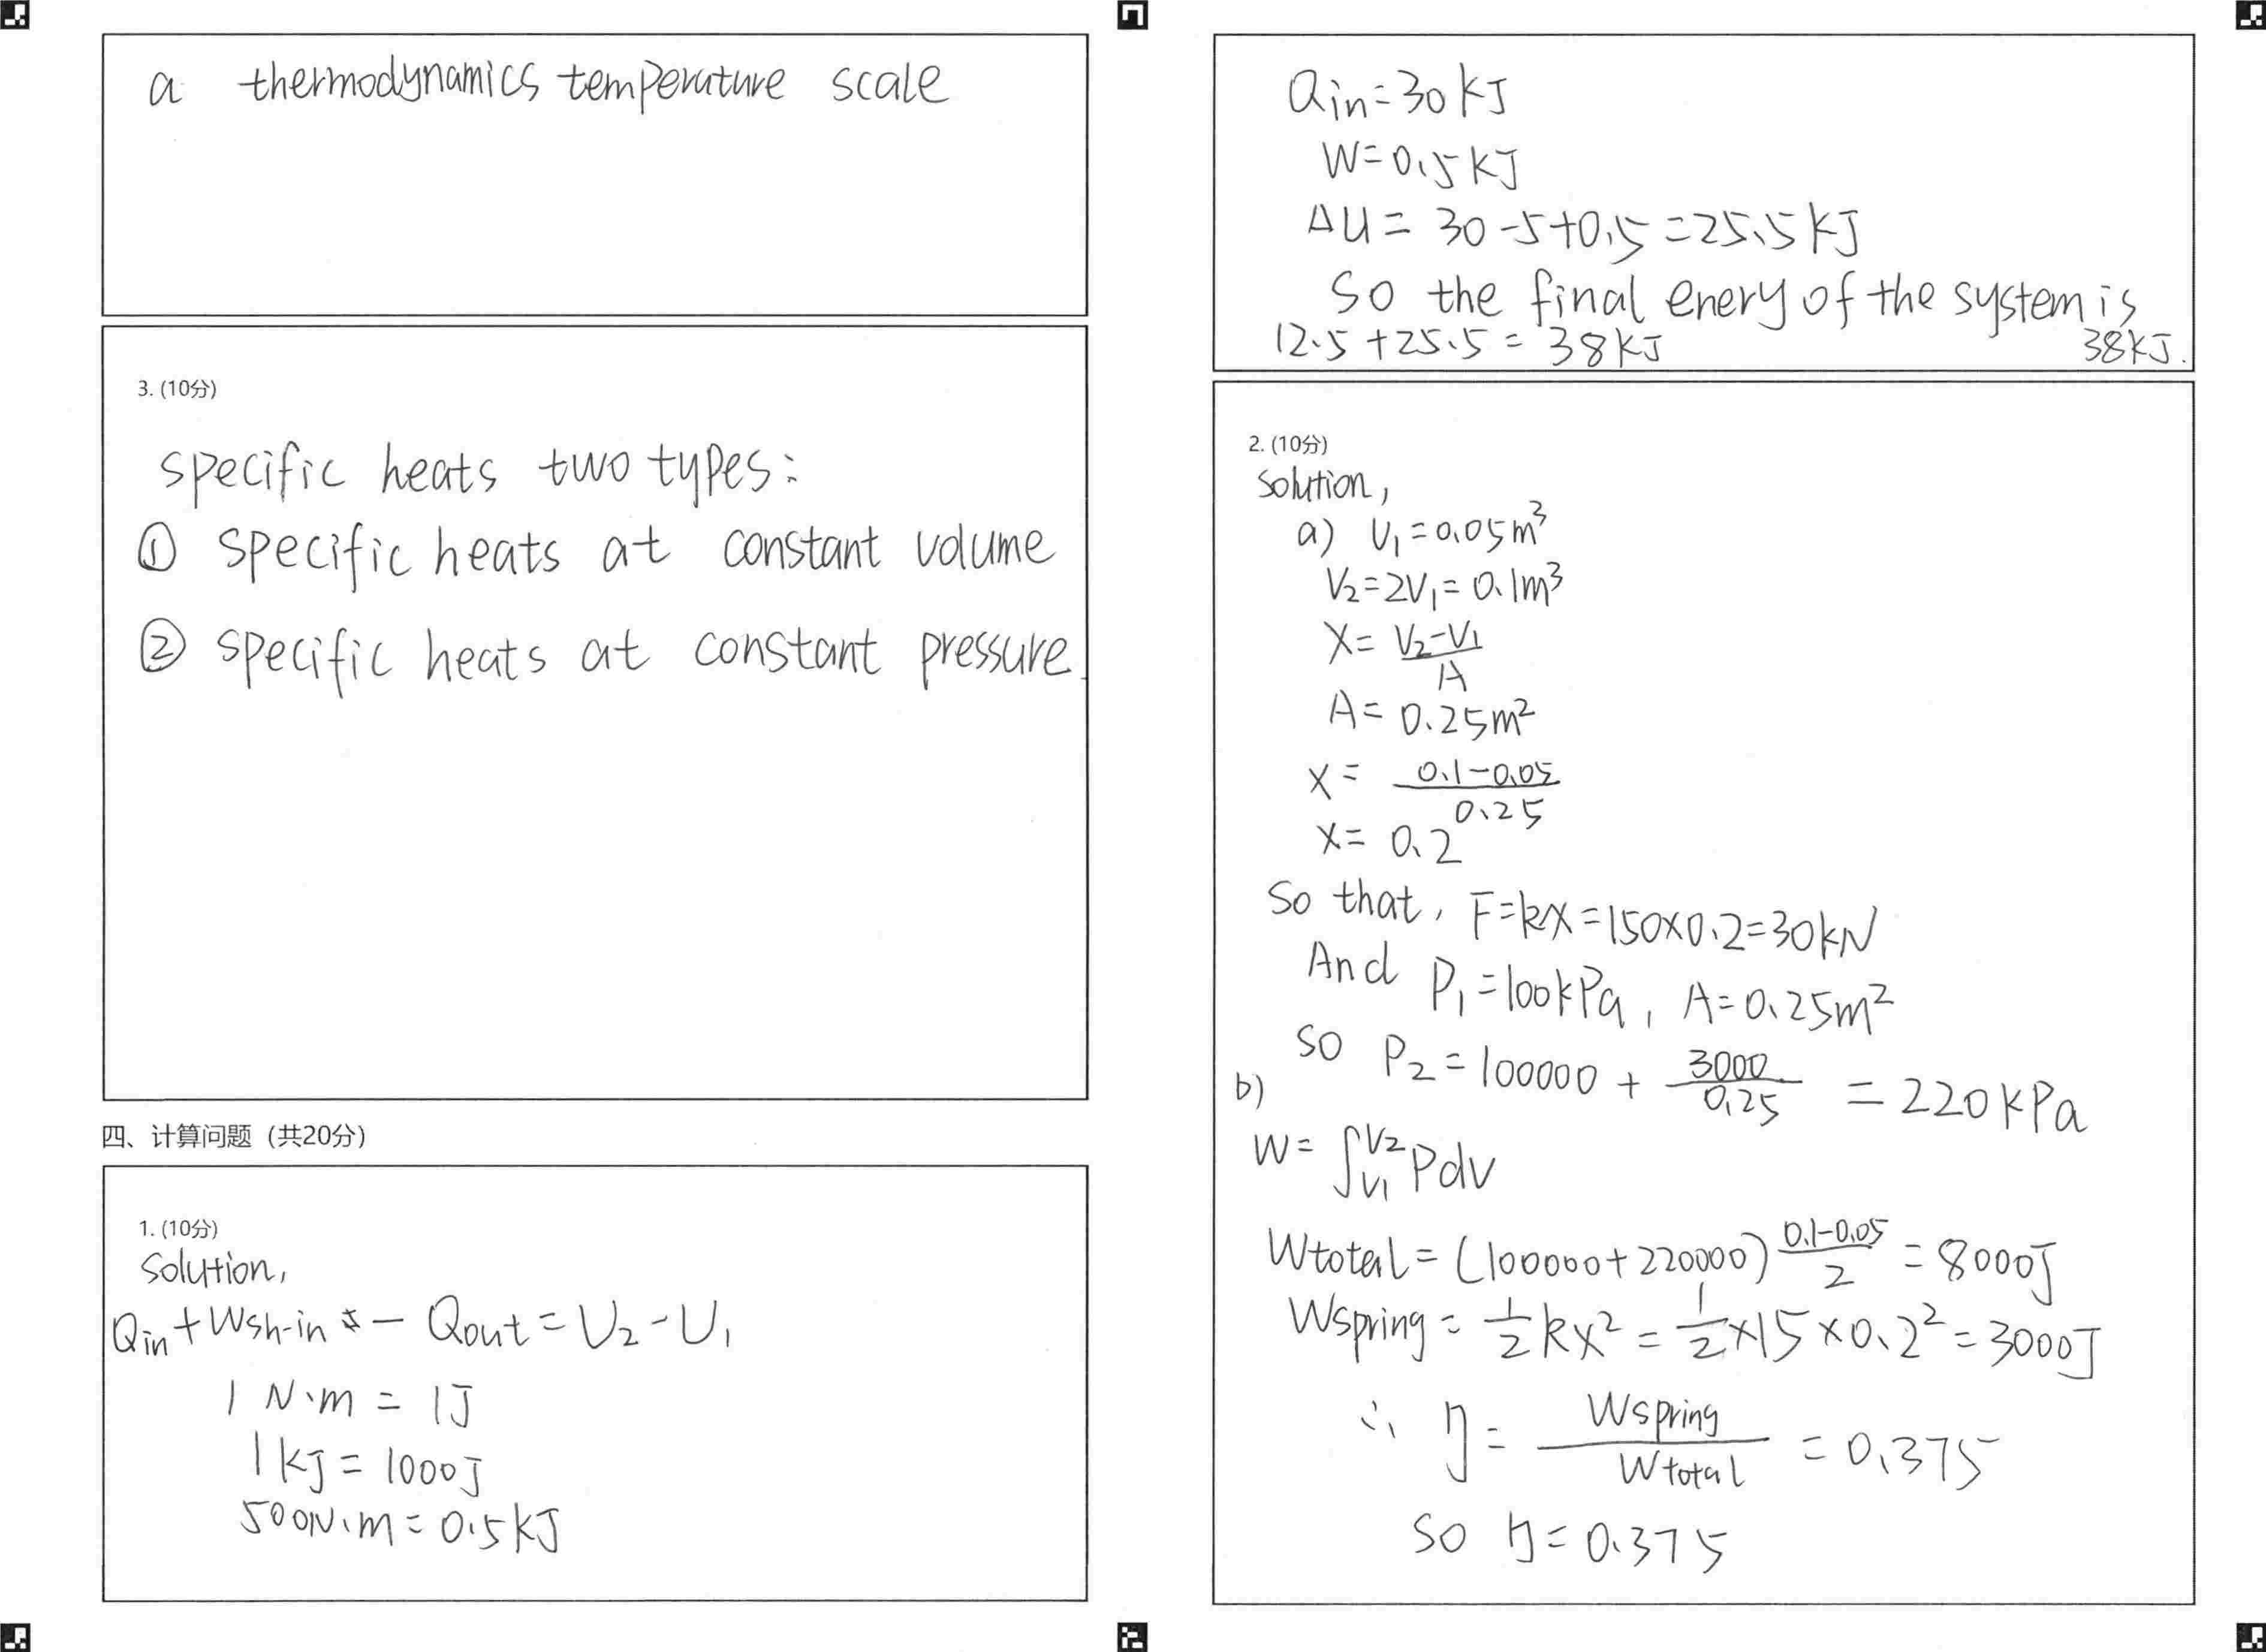 a thermodynamics temperature scale
3. (10分)
specific heats two types:
① specific heats at constant volume
② specific heats at constant pressure.
四、计算问题（共20分）
1. (10分)
Solution,
Qin + Wsh-in - Qout = U₂ - U₁
1 N·m = 1J
1kJ = 1000J
500N·m = 0.5kJ
Qin = 30kJ
W = 0.5kJ
ΔU = 30 - 5 + 0.5 = 25.5kJ
So the final enery of the system is
12.5 + 25.5 = 38kJ 38kJ.
2. (10分)
Solution,
a) V₁ = 0.05m³
V₂ = 2V₁ = 0.1m³
X = (V₂ - V₁)/A
A = 0.25m²
X = (0.1 - 0.05)/0.25
X = 0.2
So that, F = kx = 150×0.2 = 30kN
And P₁ = 100kPa, A = 0.25m²
So P₂ = 100000 + 3000/0.25 = 220kPa
b)
W = ∫V₁^V₂ Pdv
Wtotal = (100000 + 220000) (0.1 - 0.05)/2 = 8000J
Wspring = 1/2 kx² = 1/2 × 15 × 0.2² = 3000J
∴ η = Wspring/Wtotal = 0.375
So η = 0.375